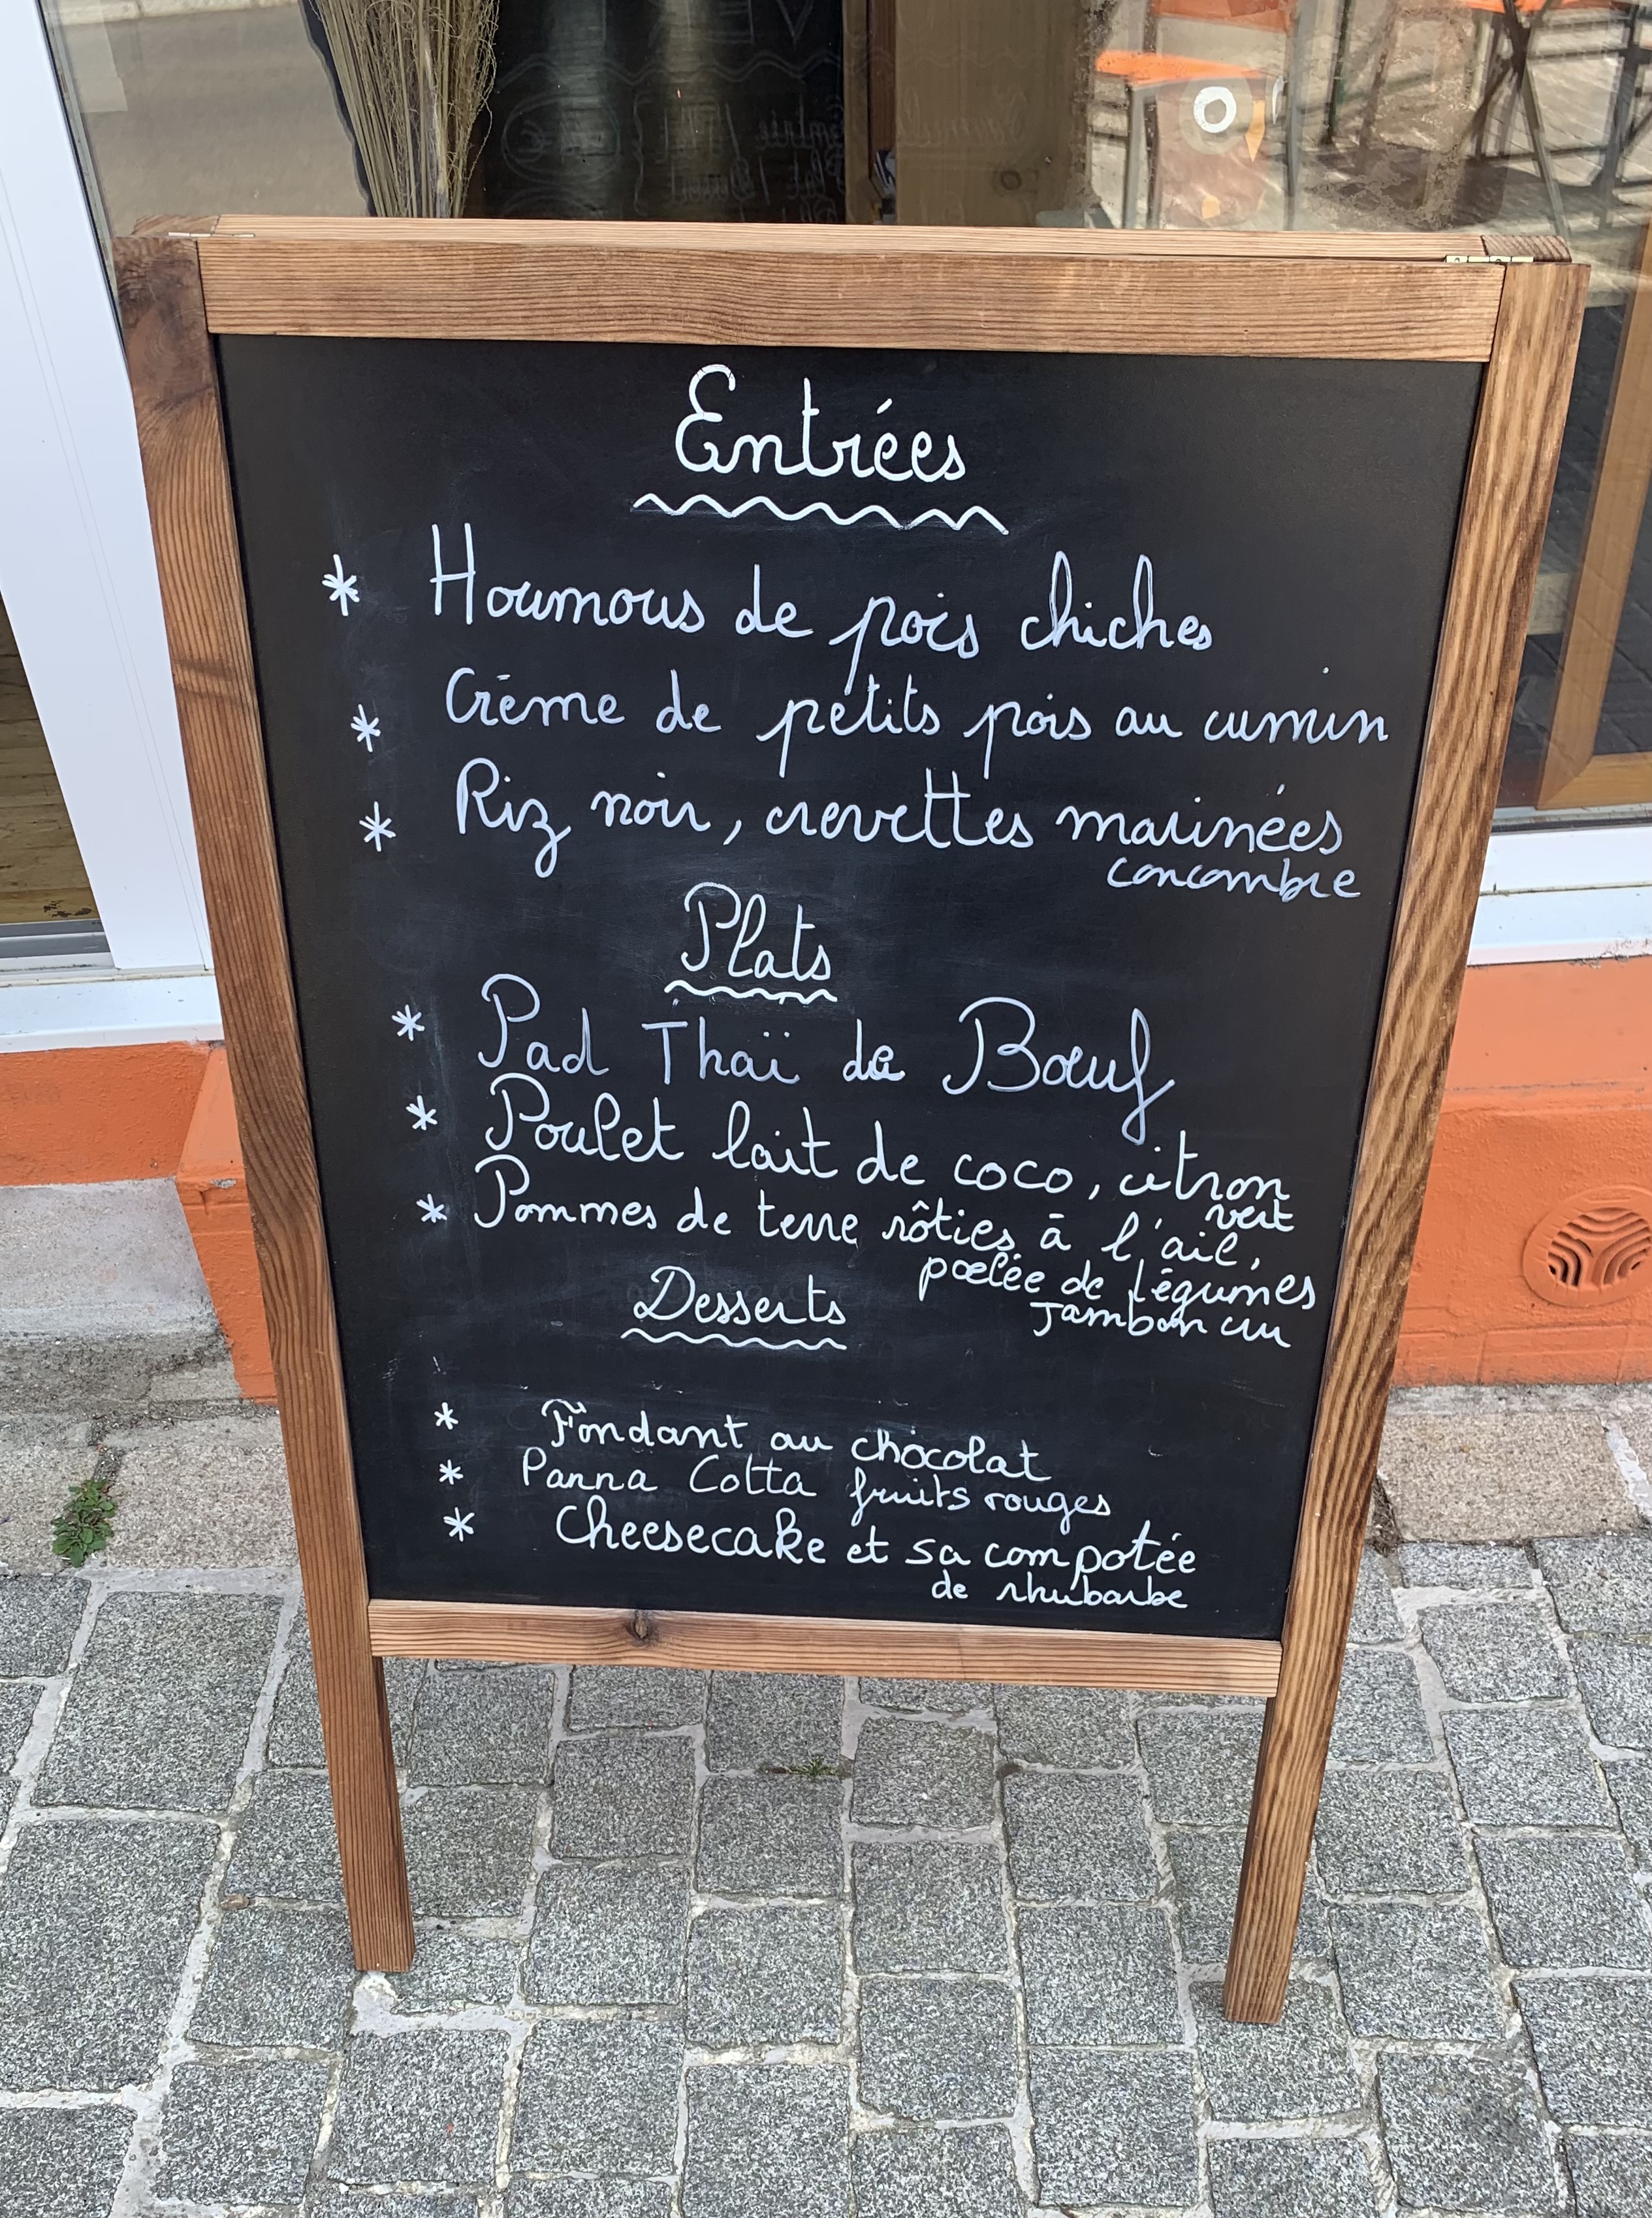 Entrées
* Houmous de pois chiches
* Crème de petits pois au cumin
* Riz noir, crevettes marinées
concombre
Plats
* Pad Thaï de Bœuf
* Poulet lait de coco, citron
vert
* Pommes de terre rôties à l'ail,
poêlée de légumes
Jambon cru
Desserts
* Fondant au chocolat
* Panna Cotta fruits rouges
* Cheesecake et sa compotée
de rhubarbe